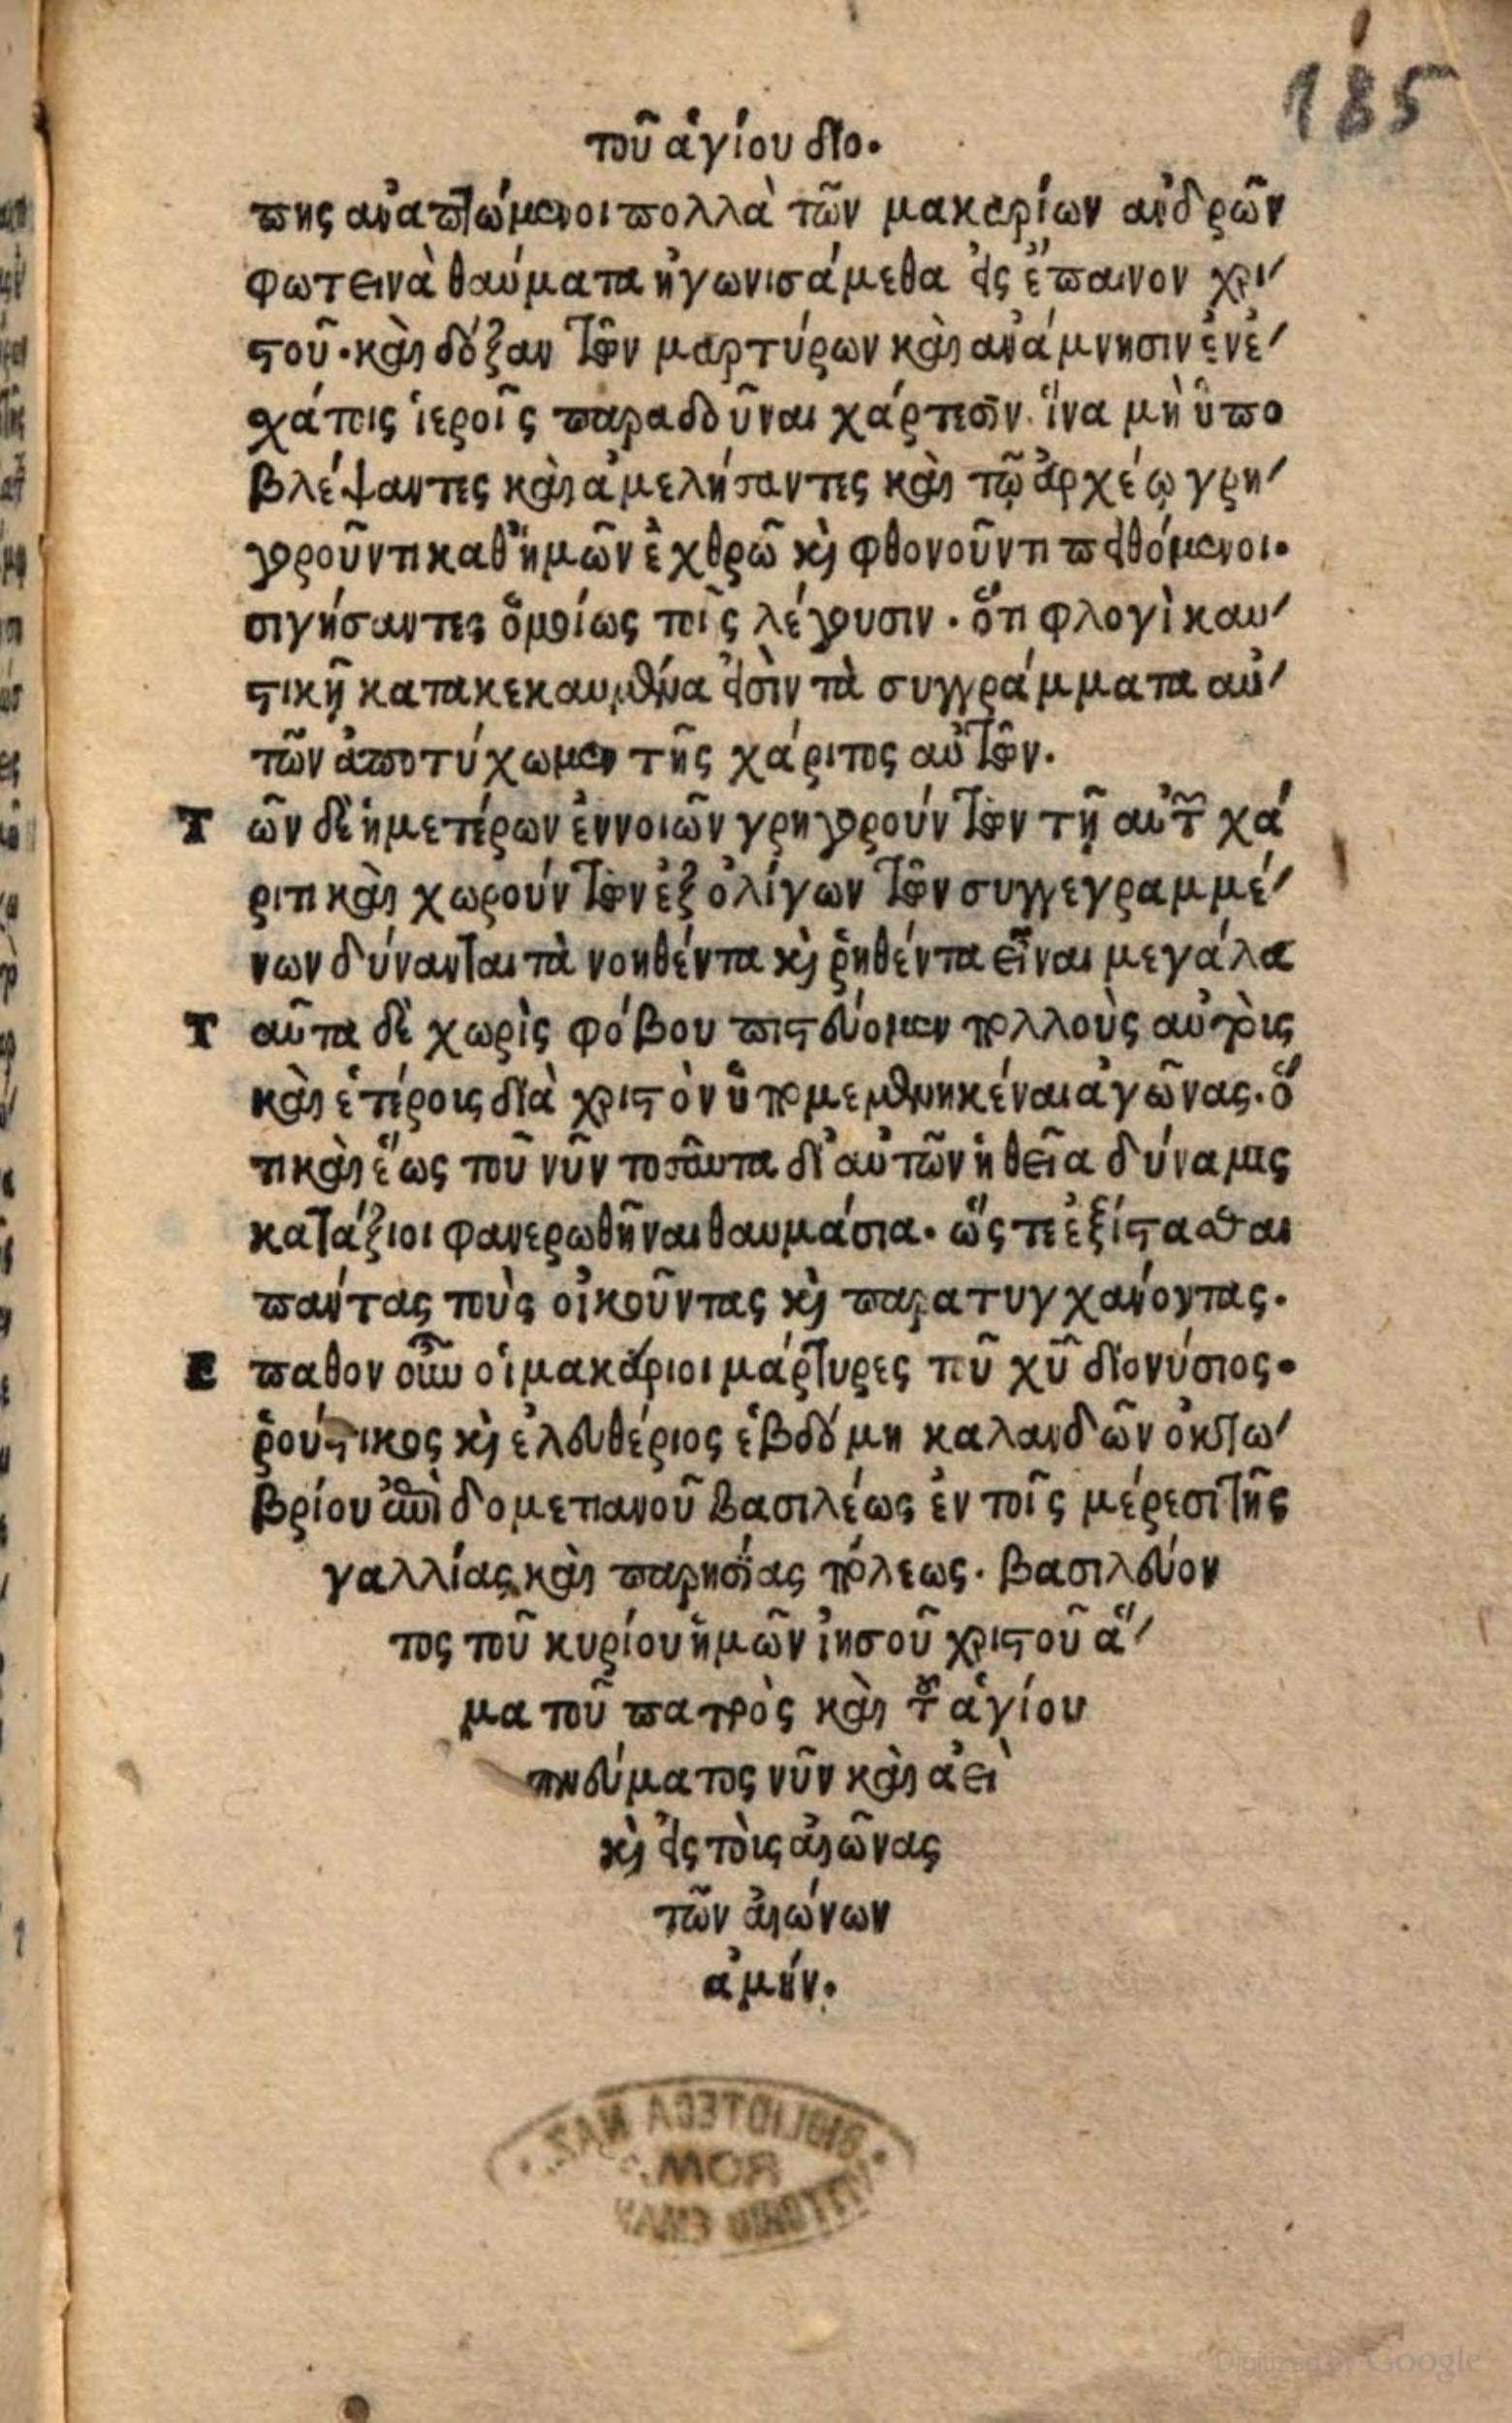 185
τοῦ ἁγίου διο.
της ἀναπτώμενοι πολλὰ τῶν μακαρίων ἀνδρῶν
φωτεινὰ θαύματα ἠγωνισάμεθα εἰς ἔπαινον χρι
στοῦ· καὶ δόξαν τῶν μαρτύρων καὶ ἀνάμνησιν ἐν ἐ
χάτοις ἱεροῖς παραδοῦναι χάρτεσιν. ἵνα μὴ ὑπο
βλέψαντες καὶ ἀμελήσαντες καὶ τῷ ἀρχέῳ γρη
γοροῦντι καθ' ἡμῶν ἐχθρῶ καὶ φθονοῦντι πειθόμενοι.
σιγήσαντες ὁμοίως τοῖς λέγουσιν. ὅτι φλογὶ καυ
στικῇ κατακεκαυμένα εἰσὶν τὰ συγγράμματα αὐ
τῶν ἀποτύχωμεν τῆς χάριτος αὐτῶν.
Τ ῶν δὲ ἡμετέρων ἐννοιῶν γρηγορούντων τῇ αὐτοῦ χά
ριτι καὶ χωρούντων ἐξ ὀλίγων τῶν συγγεγραμμέ
νων δύνανται τὰ νοηθέντα καὶ ῥηθέντα εἶναι μεγάλα
Τ αῦτα δὲ χωρὶς φόβου πιστεύομεν πολλοὺς αὐτοὺς
καὶ ἑτέροις διὰ χριστὸν ὑπομεμενηκέναι ἀγῶνας. ὅ
τι καὶ ἕως τοῦ νῦν τοσαῦτα δι' αὐτῶν ἡ θεῖα δύναμις
καταξιοι φανερωθῆναι θαυμάσια. ὥς τε ἐξίστασθαι
πάντας τοὺς οἰκοῦντας καὶ παρατυγχανόντας.
Ε παθον οὖν οἱ μακάριοι μάρτυρες τοῦ χυ διονύσιος.
ῥούστικος καὶ ἐλευθέριος ἑβδόμη καλανδῶν ὀκτω
βρίου ἐπὶ δομετιανοῦ βασιλέως ἐν τοῖς μέρεσι τῆς
γαλλίας καὶ παρησίας πόλεως. βασιλεύον
τος τοῦ κυρίου ἡμῶν ἰησοῦ χριστοῦ ἅ
μα τοῦ πατρὸς καὶ τοῦ ἁγίου
πνεύματος νῦν καὶ ἀεὶ
καὶ εἰς τοὺς αἰῶνας
τῶν αἰώνων
ἀμήν.
BIBLIOTECA NAZ.
ROMA
VITTORIO EMAN
Digitized by Google